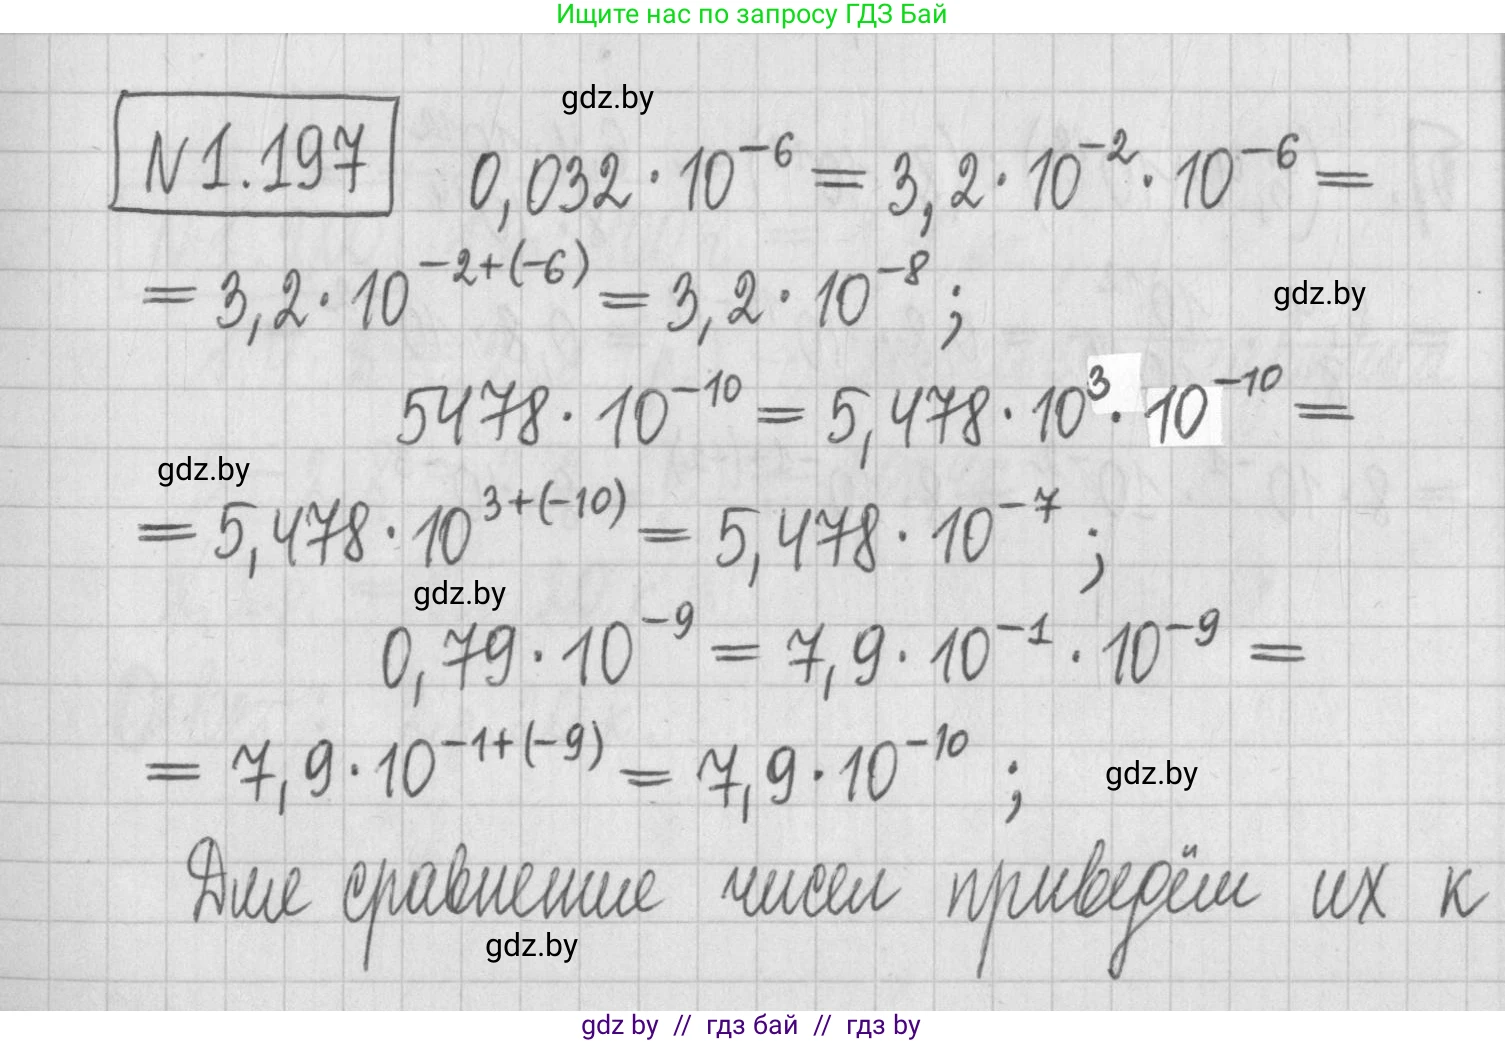 Ищите нас по запросу ГДЗ Бай
gdz.by
N 1.197 0,032 · 10⁻⁶ = 3,2 · 10⁻² · 10⁻⁶ =
= 3,2 · 10⁻²⁺⁽⁻⁶⁾ = 3,2 · 10⁻⁸ ;
gdz.by
5478 · 10⁻¹⁰ = 5,478 · 10³ · 10⁻¹⁰ =
gdz.by
= 5,478 · 10³⁺⁽⁻¹⁰⁾ = 5,478 · 10⁻⁷ ;
gdz.by
0,79 · 10⁻⁹ = 7,9 · 10⁻¹ · 10⁻⁹ =
= 7,9 · 10⁻¹⁺⁽⁻⁹⁾ = 7,9 · 10⁻¹⁰ ;
gdz.by
Для сравнение чисел приведём их к
gdz.by
gdz by // гдз бай // гдз by